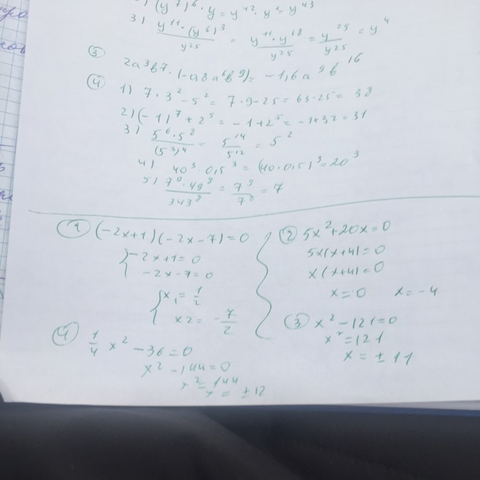 2) (y⁷)⁶ · y = y⁴² · y = y⁴³
3) y¹¹ · (y⁶)³ / y²⁵ = y¹¹ · y¹⁸ / y²⁵ = y²⁹ / y²⁵ = y⁴
③ 2a³b⁷ · (-0,8a⁶b⁹) = -1,6a⁹b¹⁶
④ 1) 7 · 3² - 5² = 7 · 9 - 25 = 63 - 25 = 38
2) (-1)⁷ + 2⁵ = -1 + 2⁵ = -1 + 32 = 31
3) 5⁶ · 5⁸ / (5³)⁴ = 5¹⁴ / 5¹² = 5²
4) 40³ · 0,5³ = (40 · 0,5)³ = 20³
= 7⁹ / 7⁸ = 7
① (-2x+1)(-2x-7)=0
-2x+1=0
-2x-7=0
x₁ = 1/2
x2 = -7/2
② 5x²+20x=0
5x(x+4)=0
x(x+4)=0
x=0 x=-4
③ x²-121=0
x²=121
x=±11
④ 1/4 x² - 36=0
x²-144=0
x²=144
x=±12